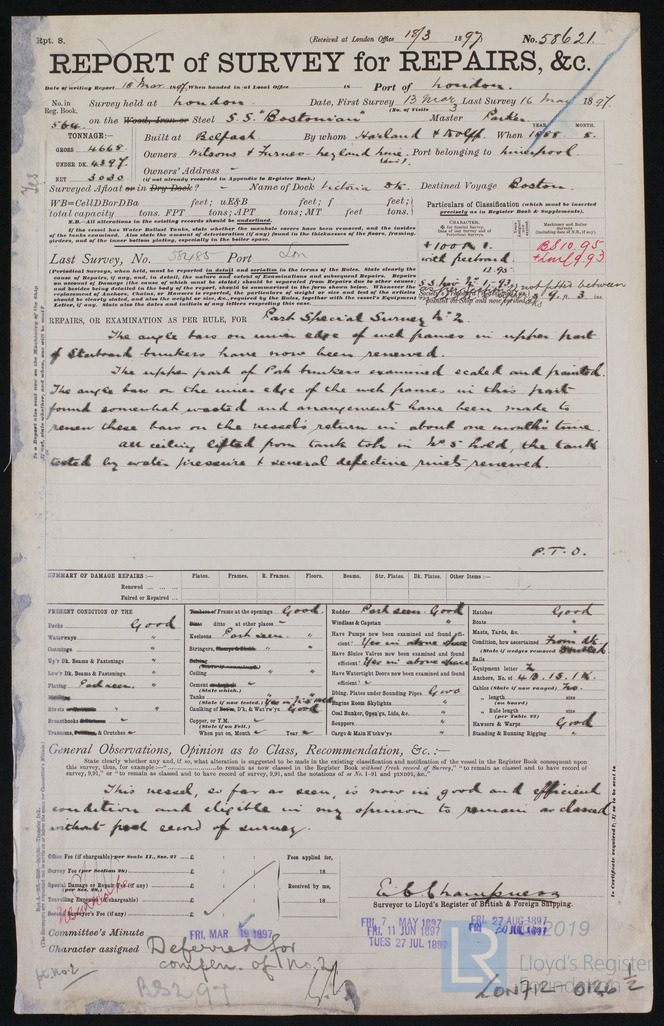 Rpt. 8.
(Received at London Office 18/3 1897 No. 58621.
REPORT of SURVEY for REPAIRS, &c.
Date of writing Report 18 Mar 1897 When handed in at Local Office 18 Port of London.
No. in Reg. Book. Survey held at London Date, First Survey 13 Mar Last Survey 16 Mar 1897.
(No. of Visits 3
564 on the Wood, Iron or Steel S.S. "Bostonian" Master Parker
TONNAGE:— Built at Belfast By whom Harland & Wolff When 1888 8.
YEAR. MONTH.
GROSS 4668 Owners Wilsons & Furness-Leyland Line Port belonging to Liverpool
UNDER DK. 4397 Owners' Address -
NET 3030 (if not already recorded in Appendix to Register Book.)
Surveyed Afloat or in Dry Dock? - Name of Dock Victoria Dk. Destined Voyage Boston.
WB=CellDBorDBa feet; uE&B feet; f feet;
total capacity tons. FPT tons; APT tons; MT feet tons.
Particulars of Classification (which must be inserted precisely as in Register Book & Supplements).
N.B.—All alterations in the existing records should be underlined.
If the vessel has Water Ballast Tanks, state whether the manhole covers have been removed, and the insides of the tanks examined. Also state the amount of deterioration (if any) found in the thicknesses of the floors, framing, girders, and of the inner bottom plating, especially in the boiler space.
CHARACTER.
+100A1.
with freeboard
12.95
BS10.95
Last Survey, No. 58485 Port Lon
(Periodical Surveys, when held, must be reported in detail and seriatim in the terms of the Rules. State clearly the cause of Repairs, if any, and, in detail, the nature and extent of Examinations and subsequent Repairs.
REPAIRS, OR EXAMINATION AS PER RULE, FOR Part Special Survey No 2
The angle bars on inner edge of web frames in upper part
of Starboard bunkers have now been renewed.
The upper part of Port bunkers examined scaled and painted.
The angle bars on the inner edge of the web frames in this part
found somewhat wasted and arrangements have been made to
renew these bars on the vessel's return in about one month's time.
All ceiling lifted from tank top in No 5 hold, the tank
tested by water pressure & several defective rivets renewed.
P.T.O.
SUMMARY OF DAMAGE REPAIRS :— Plates. Frames. R. Frames. Floors. Beams. Str. Plates. Dk. Plates. Other Items :—
Renewed
Faired or Repaired
PRESENT CONDITION OF THE
Decks Good
Waterways "
Coamings "
Up'r Dk. Beams & Fastenings "
Low'r Dk. Beams & Fastenings "
Plating Part seen "
Breasthooks "
Transoms, & Crutches "
Frame at the openings Good
ditto at other places
Keelsons Part seen "
Stringers, "
Ceiling "
Cement "
(State which.)
Tanks
(State if now tested.)
Caulking of Decks, U't, & Wat'rw'ys Good
Copper, or Y.M.
(State if on Felt.)
When put on, Month Year
Rudder Part seen Good
Windlass & Capstan "
Have Pumps now been examined and found efficient? Yes in above space
Have Sluice Valves now been examined and found efficient? Yes in above space
Have Watertight Doors now been examined and found efficient?
Dblng. Plates under Sounding Pipes Good
Engine Room Skylights "
Coal Bunker, Open'gs, Lids, &c. "
Scuppers "
Cargo & Main H'tchw'ys "
Hatches Good
Boats "
Masts, Yards, &c. "
Condition, how ascertained From dk.
(State if wedges removed
Sails
Equipment letter
Anchors, No. of 4 B. 1 S. 1 K.
Cables (State if now ranged) No.
" length size
(on board)
" Rule length size
(per Table 22)
Hawsers & Warps Good
Standing & Running Rigging "
General Observations, Opinion as to Class, Recommendation, &c. :—
State clearly whether any, and if so, what alteration is suggested to be made in the existing classification and notification of the vessel in the Register Book consequent upon
this survey, thus, for example :—" to remain as now classed in the Register Book without fresh record of Survey," "to remain as classed and to have record of
survey, 9,91," or "to remain as classed and to have record of survey, 9,91, and the notations of ss No. 1-91 and ptND91, &c."
This vessel, so far as seen, is now in good and efficient
condition and eligible in my opinion to remain as classed
without fresh record of survey.
Office Fee (if chargeable) per Scale II., Sec. 27 £ : : Fees applied for,
Survey Fee (per Section 28) £ : : 18
Special Damage or Repair Fee (if any) £ : : Received by me,
(per Sec. 28.)
Travelling Expenses (if chargeable) £ : : 18
Second Surveyor's Fee (if any) £ : :
E. C. Champness
Surveyor to Lloyd's Register of British & Foreign Shipping.
Committee's Minute FRI, MAR 19 1897
FRI, 7 MAY 1897
FRI, 11 JUN 1897
TUES 27 JUL 1897
FRI, 27 AUG 1897
FRI 30 JUL 1897
Character assigned Deferred for
complen. of No. 2
BS297
LR
2019
Lloyd's Register
Foundation
LON712-0126 1/2